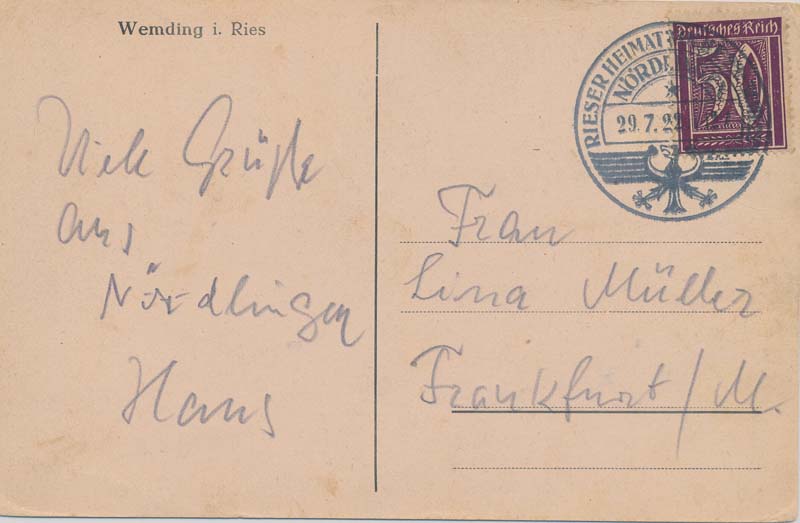 Wemding i. Ries
Viele Grüße
aus
Nördlingen
Hans
RIESER HEIMAT
NÖRDL
29.7.22
Deutsches Reich
50
Frau
Lina Müller
Frankfurt/M.